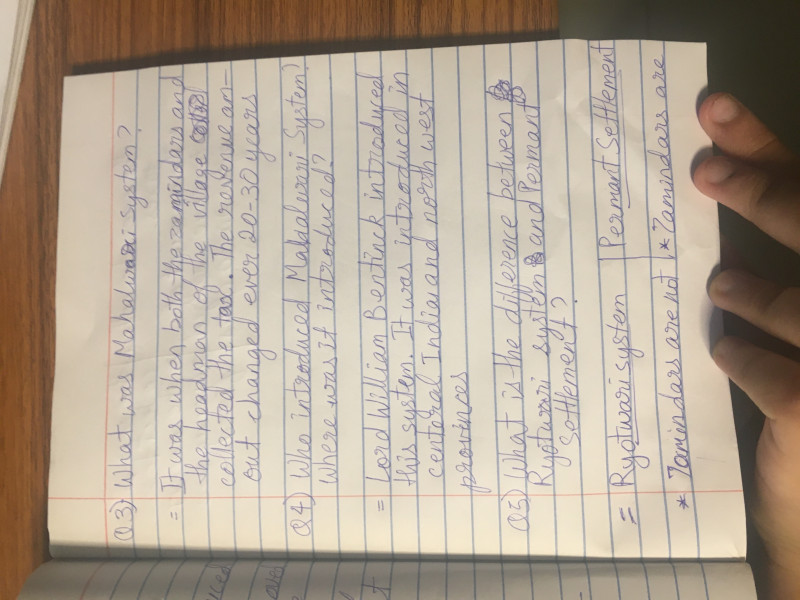 Q3) What was Mahalwari System?
= It was when both the zamindars and
the headman of the village
collected the tax. The revenue am-
out changed ever 20-30 years
Q4) Who introduced Mahalwari System?
Where was it introduced?
= Lord William Bentinck introduced
this system. It was introduced in
centoral India and north west
provinces
Q5) What is the difference between
Ryotwari system and Permant
Settlement?
= Ryotwari system | Permant Settlement
* Zamindars are not | * Zamindars are